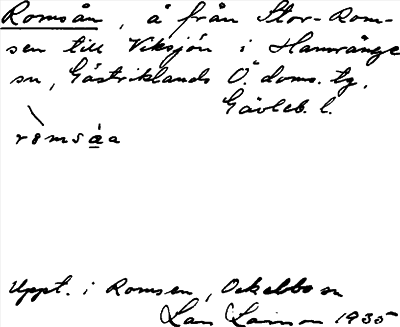 Romsån, å från Stor-Rom-
sen till Viksjön i Hamrånge
sn, Gästriklands Ö. doms. tg,
Gävleb. l.
ròmsåa
Uppt. i Romsen, Ockelbo sn
1935